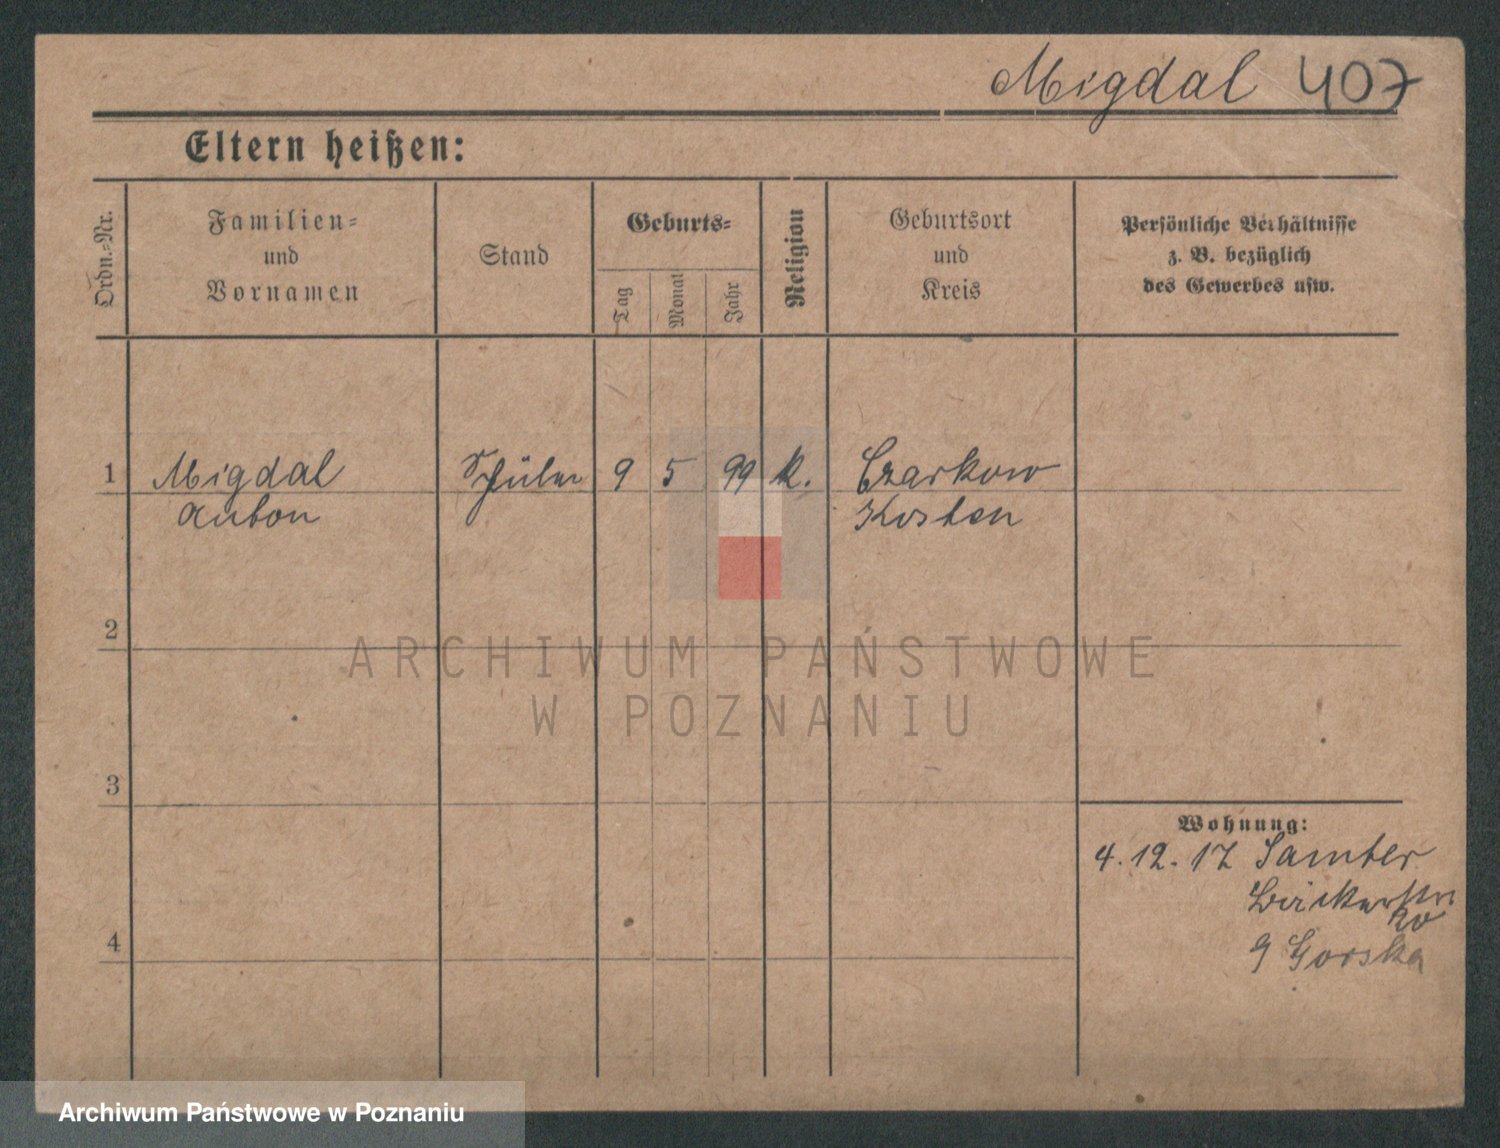 Migdal 407
Eltern heißen:
Ordn.-Nr.
Familien-
und
Vornamen
Stand
Geburts-
Tag
Monat
Jahr
Religion
Geburtsort
und
Kreis
Persönliche Verhältnisse
z. B. bezüglich
des Gewerbes usw.
1 Migdal Schüler 9 5 99 k. Czarkow
Anton Kosten
2
ARCHIWUM PAŃSTWOWE
W POZNANIU
3
Wohnung:
4.12.17 Samter
4
9 Gorska
Archiwum Państwowe w Poznaniu